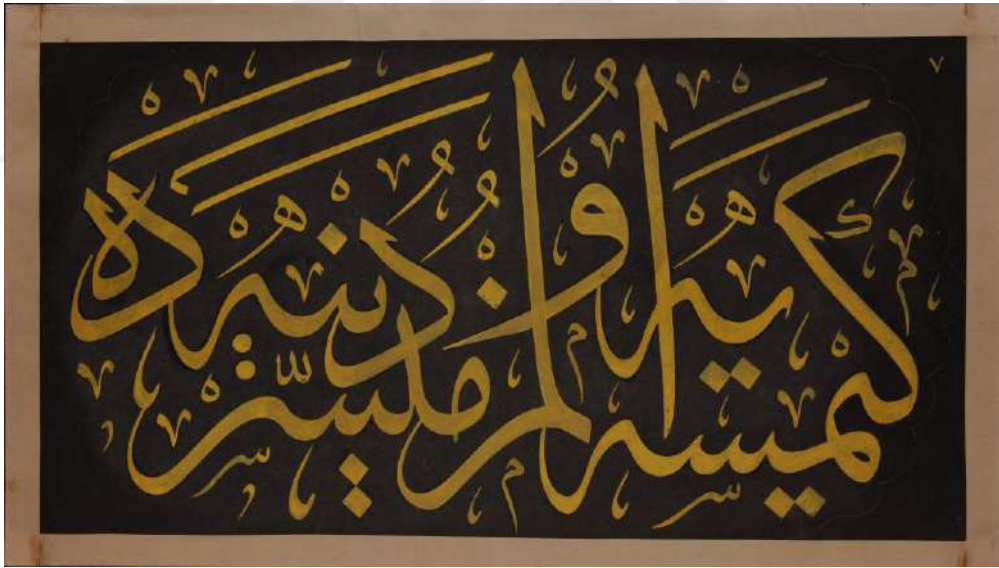 كيمسه يه اولمز ميسر دنيه ده